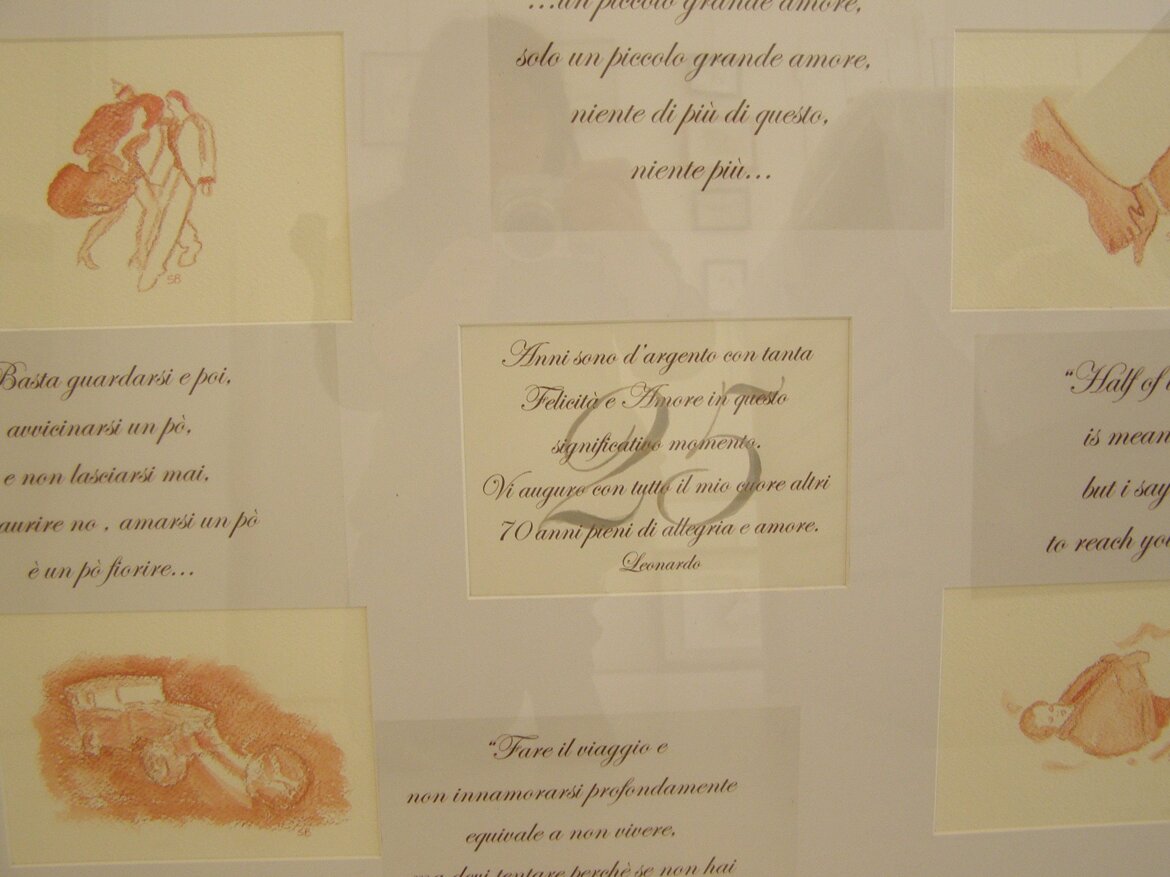 ...un piccolo grande amore,
solo un piccolo grande amore,
niente di più di questo,
niente più...
SB
Basta guardarsi e poi,
avvicinarsi un pò,
e non lasciarsi mai,
aurire no , amarsi un pò
è un pò fiorire...
25
Anni sono d'argento con tanta
Felicità e Amore in questo
significativo momento.
Vi auguro con tutto il mio cuore altri
70 anni pieni di allegria e amore.
Leonardo
"Half of
is mean
but i say
to reach you
SB
"Fare il viaggio e
non innamorarsi profondamente
equivale a non vivere,
ma devi tentare perchè se non hai